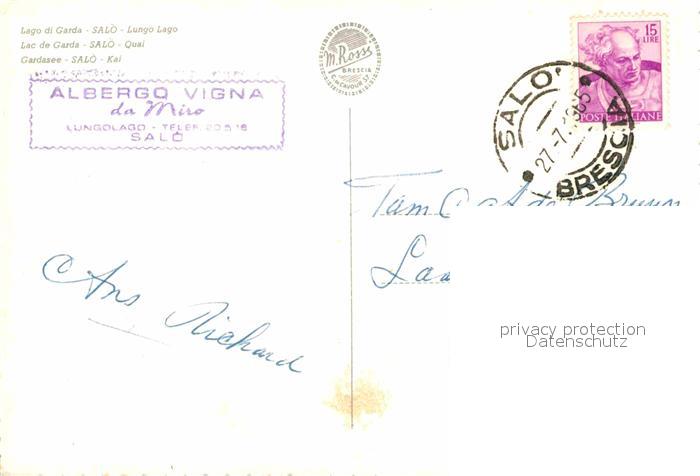 Lago di Garda - SALÒ - Lungo Lago
Lac de Garda - SALÒ - Quai
Gardasee - SALÒ - Kai
ALBERGO VIGNA
da Miro
LUNGOLAGO - TELEF. 20516
SALÒ
M. Rossi
BRESCIA
15
LIRE
POSTE ITALIANE
SALO'
BRESCIA
27-7
Richard
privacy protection
Datenschutz